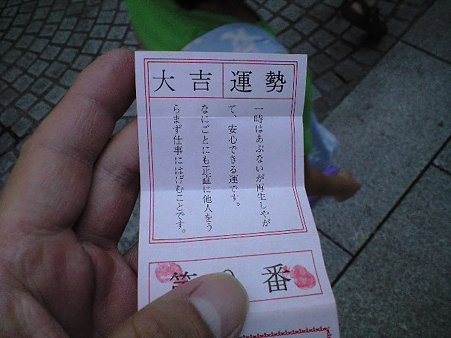 大吉運勢
一時はあぶないが再生しやが
て、安心できる運です。
なにごとにも正直に他人をう
らまず仕事にはげむことです。
第 番